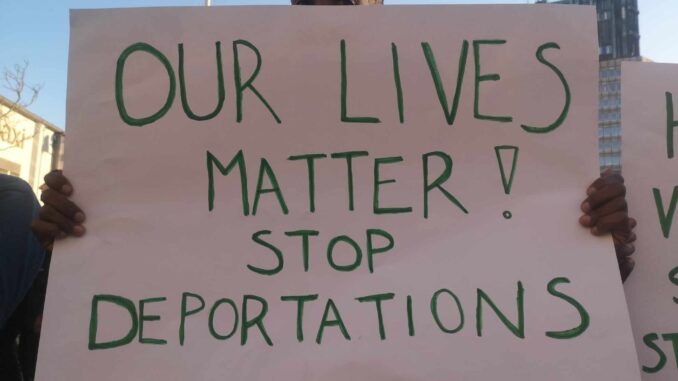 OUR LIVES
MATTER!
STOP
DEPORTATIONS